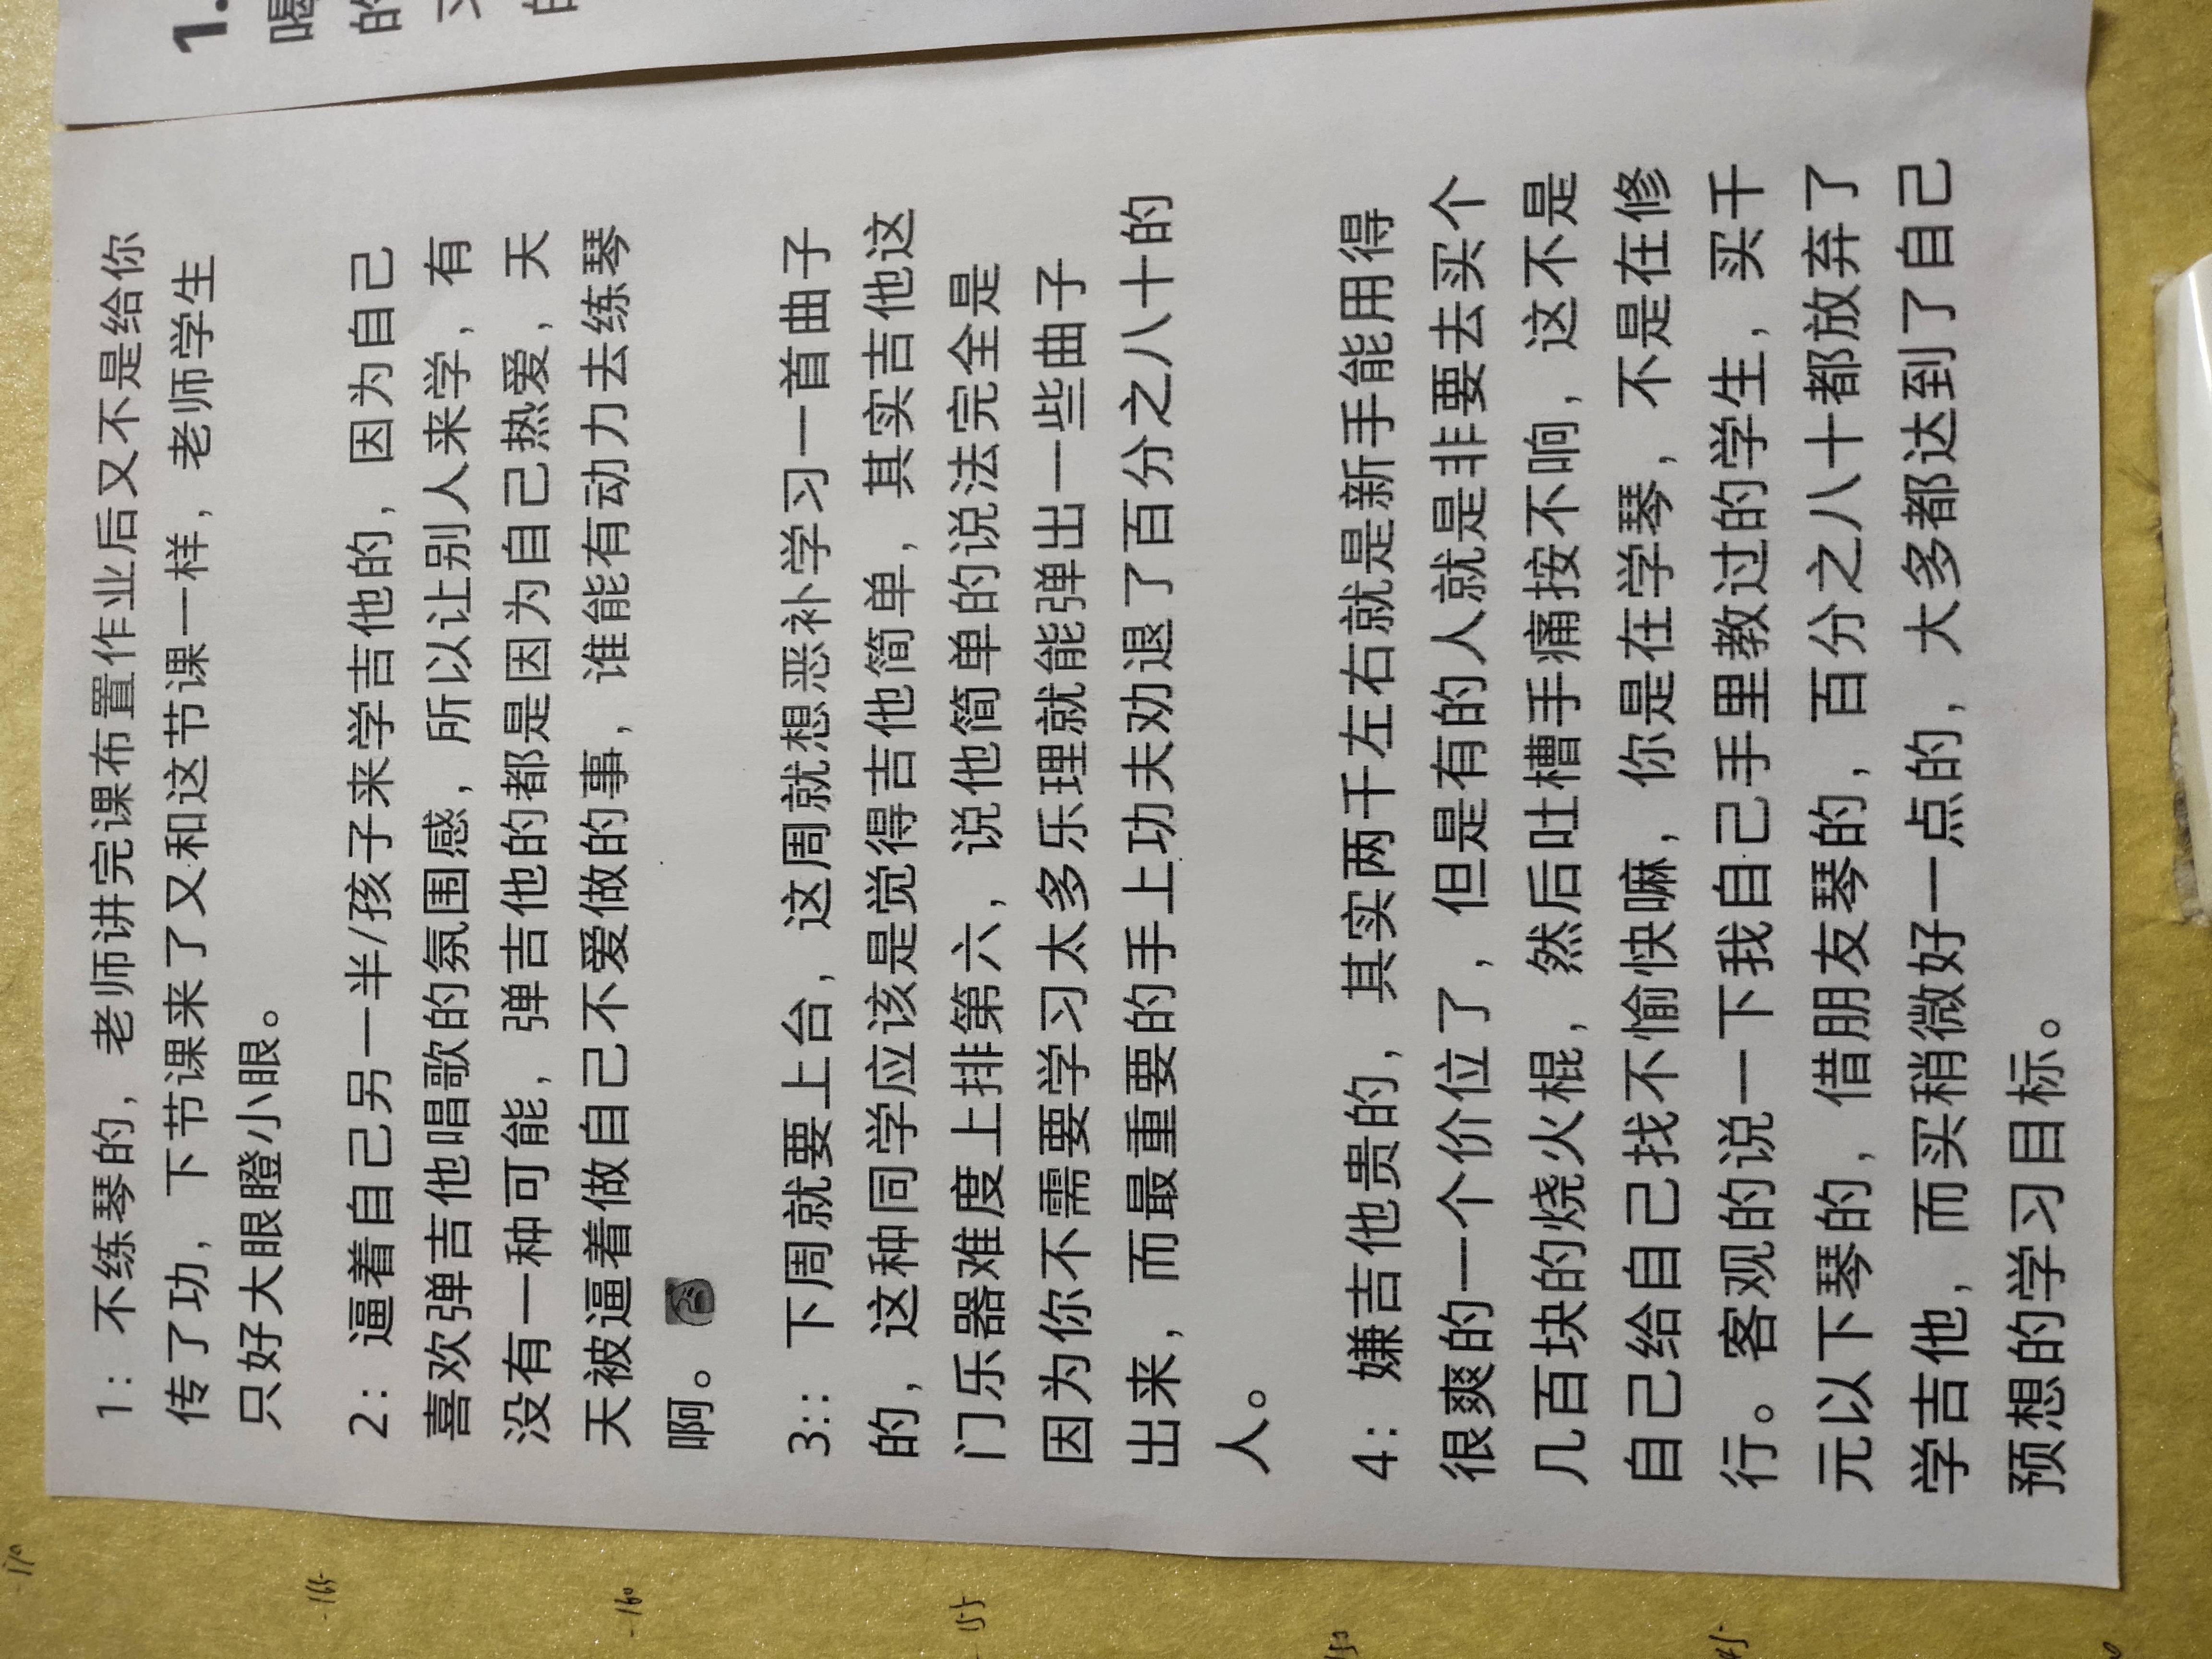 1：不练琴的，老师讲完课布置作业后又不是给你
传了功，下节课来了又和这节课一样，老师学生
只好大眼瞪小眼。
2：逼着自己另一半/孩子来学吉他的，因为自己
喜欢弹吉他唱歌的氛围感，所以让别人来学，有
没有一种可能，弹吉他的都是因为自己热爱，天
天被逼着做自己不爱做的事，谁能有动力去练琴
啊。
3：: 下周就要上台，这周就想恶补学习一首曲子
的，这种同学应该是觉得吉他简单，其实吉他这
门乐器难度上排第六，说他简单的说法完全是
因为你不需要学习太多乐理就能弹出一些曲子
出来，而最重要的手上功夫劝退了百分之八十的
人。
4：嫌吉他贵的，其实两千左右就是新手能用得
很爽的一个价位了，但是有的人就是非要去买个
几百块的烧火棍，然后吐槽手痛按不响，这不是
自己给自己找不愉快嘛，你是在学琴，不是在修
行。客观的说一下我自己手里教过的学生，买千
元以下琴的，借朋友琴的，百分之八十都放弃了
学吉他，而买稍微好一点的，大多都达到了自己
预想的学习目标。
1.
喝
的
-170
-165
-160
155
150
45